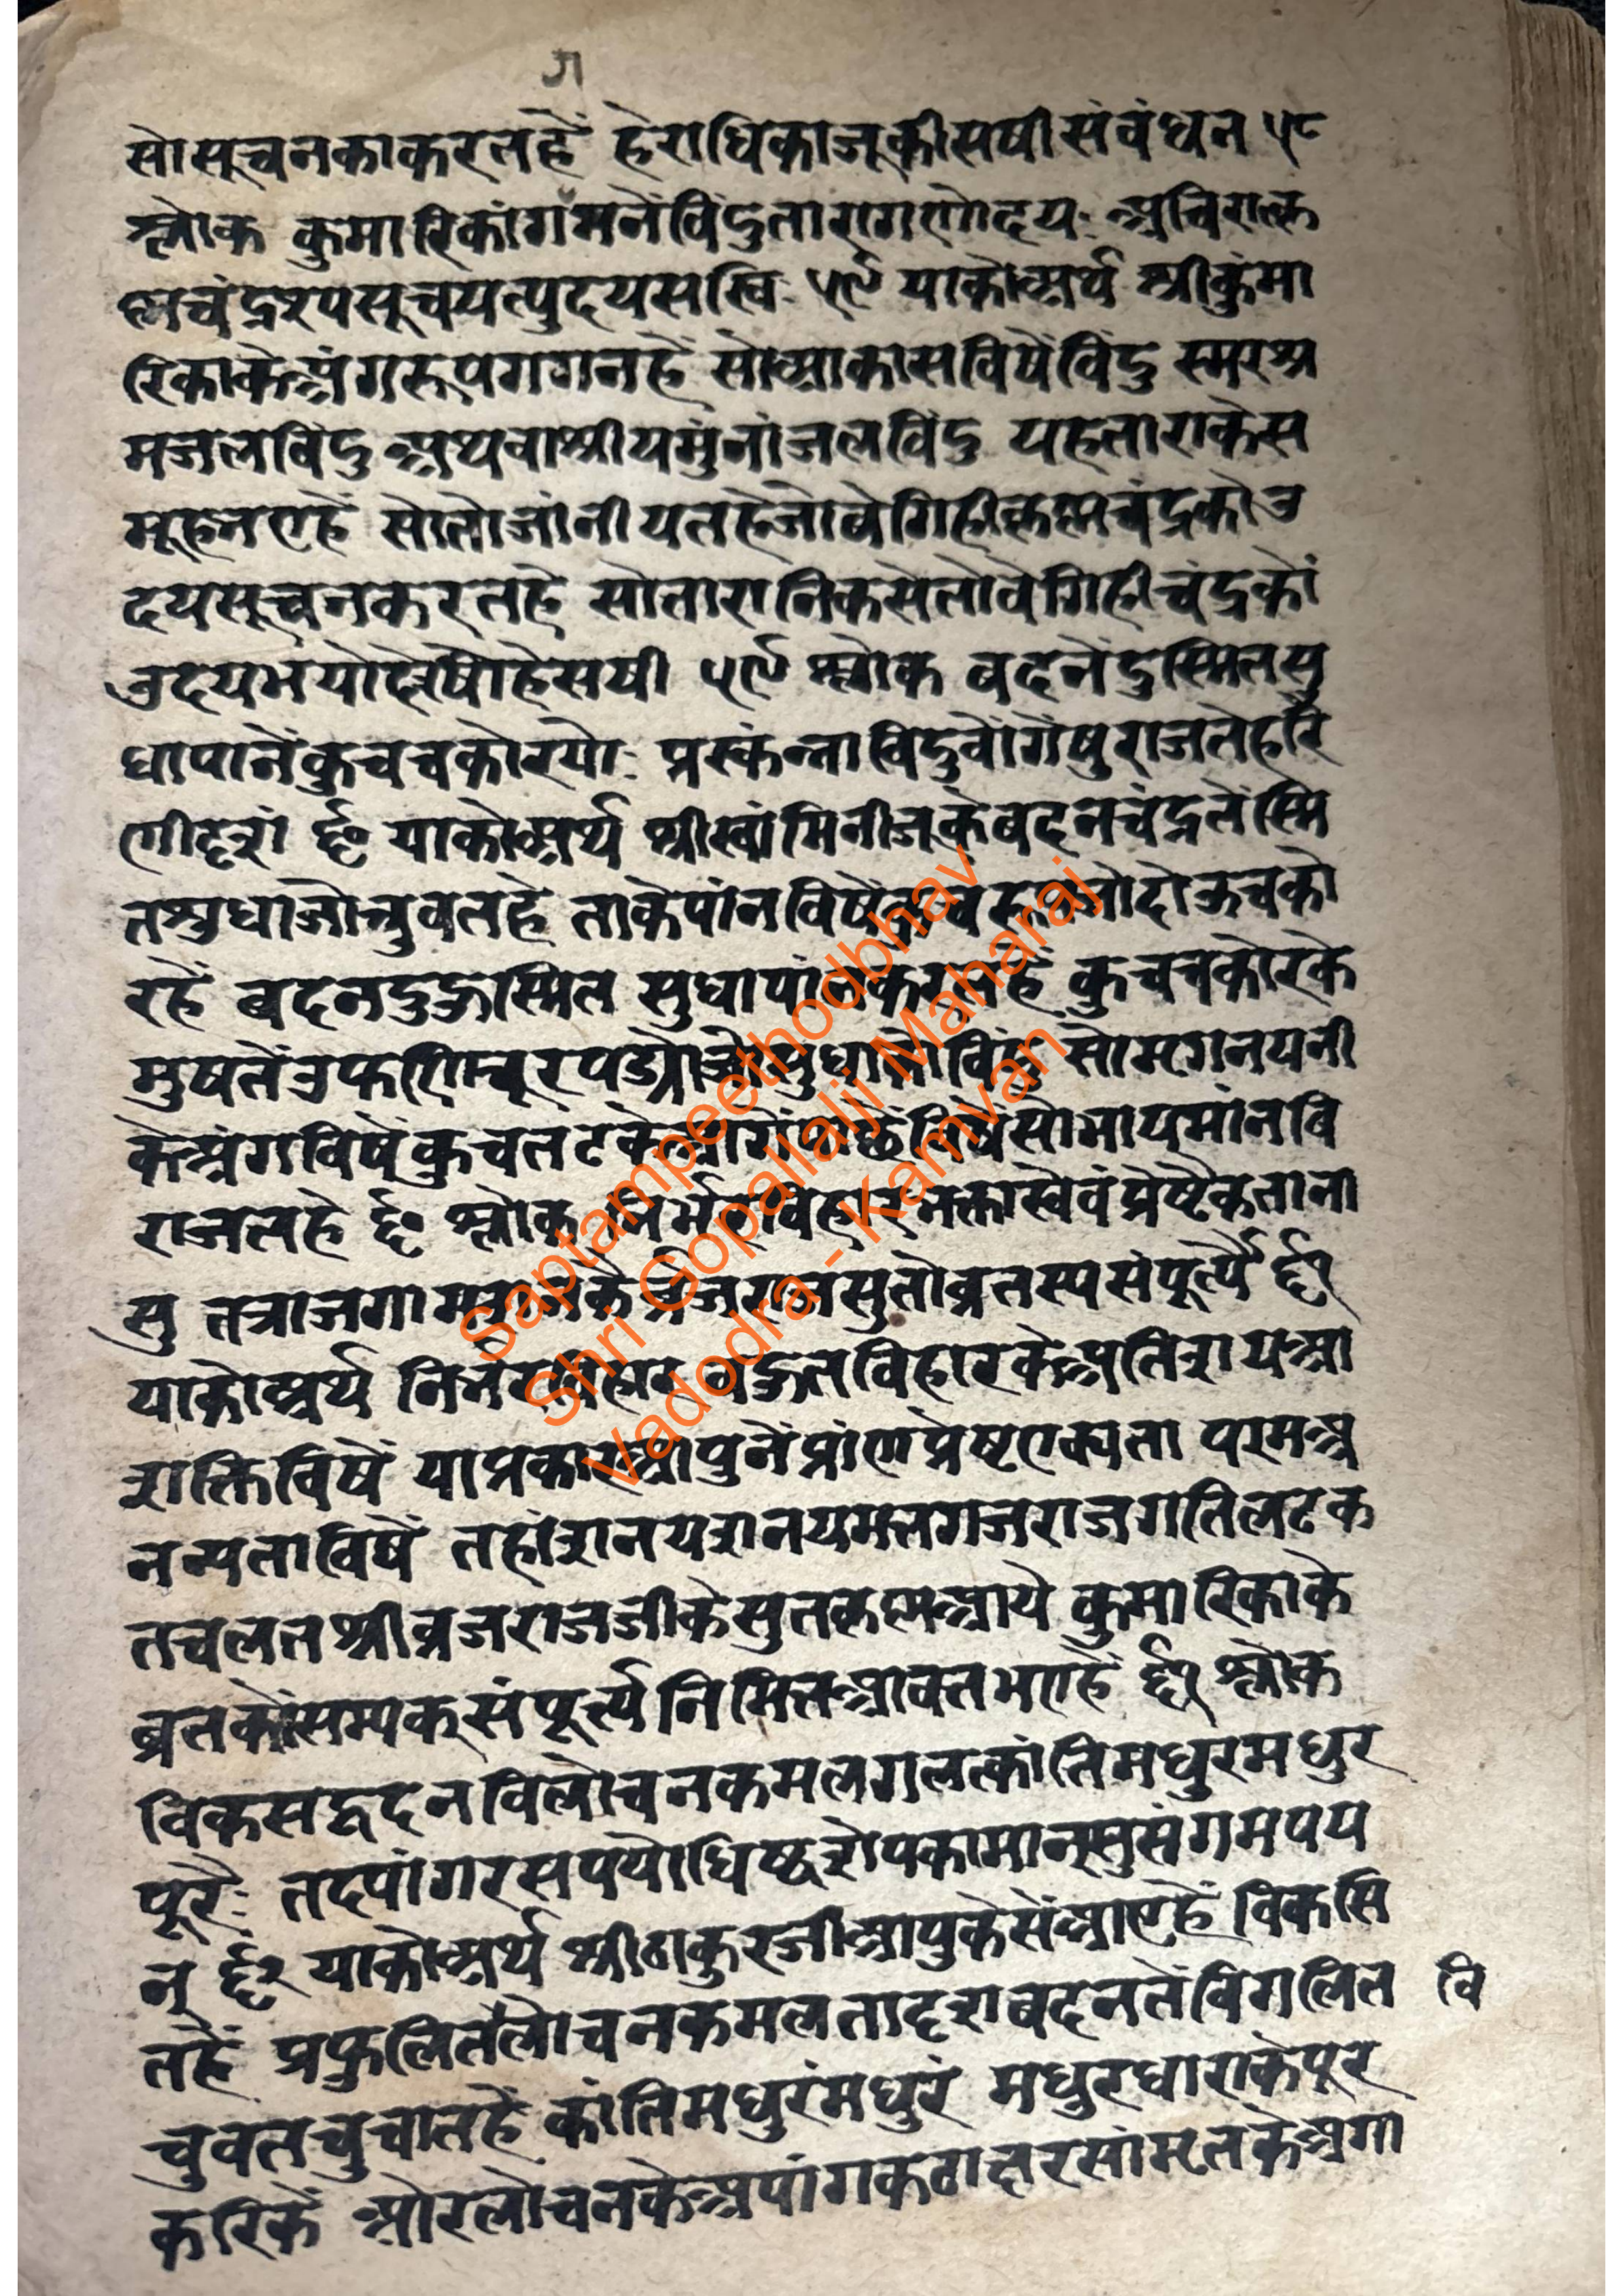 सोसूचनकाकरतहैं हेराधिकाजूकीसषीसंवंधन ५८
श्लोक कुमारिकांगमनेंविंदुतारागणोदय: अचिरात्कृ
ष्णचंद्रस्पसूचयत्पुदयसखि ५९ याकोअर्थ श्रीकुंमा
रिकाकेअंगरूपगगनहै सोआकासविषेंविंदु स्मरश्र
मजलविंदु अथवाश्रीयमुंनांजलविंदु यहताराकेस
मूहनएहैं सोतोजांनीयतहेजोवेगिहीकृष्णचंद्रकोउ
दयसूचनकरतहे सोतारानिकसेतोवेगिहीचंद्रकों
उदयभयोदेषोहेसषी ५९ श्लोक वदनेंदुस्मितसु
धापानेंकुचचकोरयो: प्रस्कंन्नाविंदुवोंगेंषुराजतेहरि
णीदृशां ६० याकोअर्थ श्रीस्वांमिनीजूकेंवदनचंद्रतेंस्मि
तशुधाजोचुवतहे ताकेपांनविषेंकुचरूपजोदोऊचको
रहैं वदनदुहूस्मित सुधापांनकरतहैं कुचचकोरके
मुषतेंउफणिचूरपड्योजोसुधाकोविंदु सोमृगनयनी
केअंगविषेंकुचतटकेआगेंपाछेंविषेंसोभायमांनवि
राजतहे ६० श्लोक निर्भरविहारभक्तास्वेवंप्रेष्टैकताना
सु तत्राजगामव्रजराजसुतोव्रतस्यसंपूर्त्यै ६१
याकोअर्थ निर्भरविहार वहुतविहारकेअतिशयआ
शक्तिविषें याप्रकारआपुनेंप्रांणप्रेष्टएक्यता परमअ
नन्यताविषें तहांशनयशनयमत्तगजराजगतिलटक
तचलतश्रीव्रजराजजीकेसुतकृष्णआये कुमारिकाके
व्रतकोंसम्यक्संपूर्त्यनिमित्तआवतभएहैं ६१ श्लोक
विकसद्वदनविलोचनकमलगलत्कांतिमधुरमधुर
पूरै: तदपांगरसपयोधिष्ठशेपकामान्सुसंगमपय
न् ६२ याकोअर्थ श्रीठाकुरजीआपुकेसेंआएहैं विकसि
तहैं प्रफुलितलोचनकमलतादृशवदनतेंविगलित वि
चुवतचुचातहें कांतिमधुरंमधुरं मधुरधाराकेपूर
करिकें ओरलोचनकेअपांगकटाक्षरसांमृतकेअगा
Saptampeethodbhav
Shri Gopallalji Maharaj
Vadodra - Kamvan